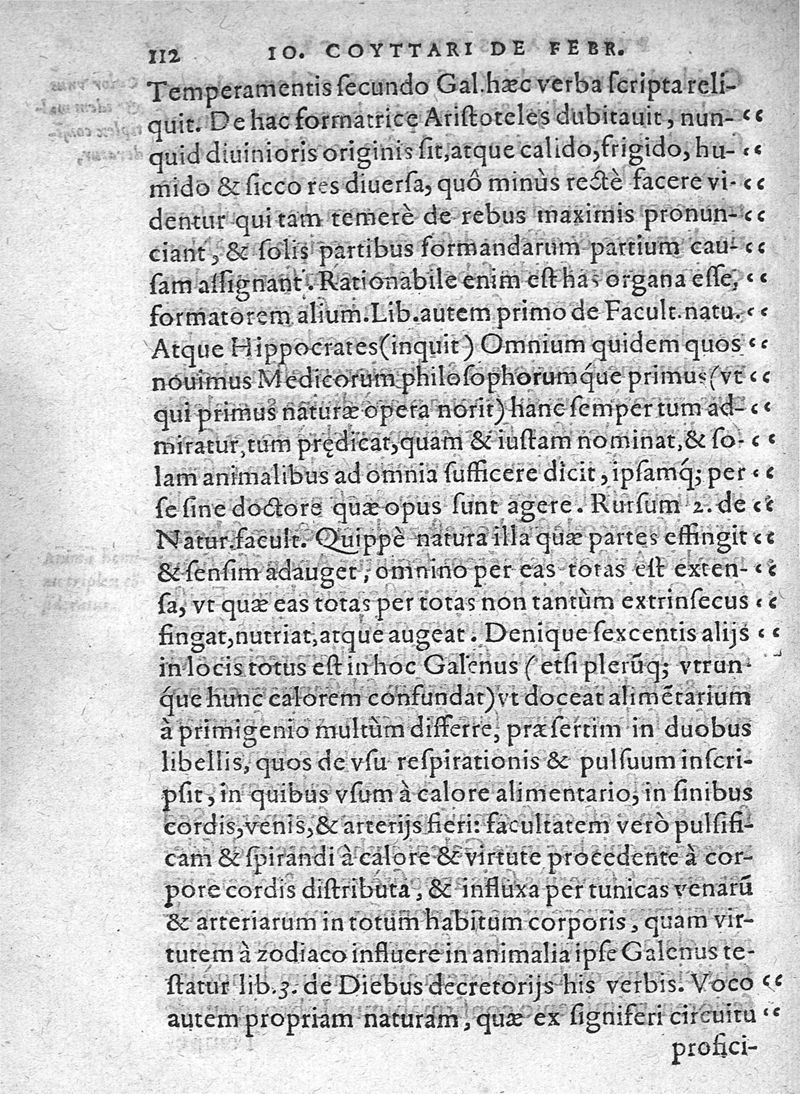 112 IO. COYTTARI DE FEBR.
Temperamentis ſecundo Gal.hæc verba ſcripta reli-
quit. De hac formatrice Ariſtoteles dubitauit, nun- “
quid diuinioris originis ſit,atque calido,frigido, hu- “
mido & ſicco res diuerſa, quô minùs rectè facere vi- “
dentur qui tam temerè de rebus maximis pronun- “
ciant, & ſolis partibus formandarum partium cau- “
ſam aſſignant. Rationabile enim eſt has organa eſſe, “
formatorem alium.Lib.autem primo de Facult.natu. “
Atque Hippocrates(inquit) Omnium quidem quos “
nouimus Medicorum philoſophorumq́ue primus (vt “
qui primus naturæ opera norit) hanc ſemper tum ad- “
miratur,tum prędicat,quam & iuſtam nominat,& ſo- “
lam animalibus ad omnia ſufficere dicit, ipſamq́; per “
ſe ſine doctore quæ opus ſunt agere. Rurſum 2. de “
Natur.facult. Quippè natura illa quæ partes effingit “
& ſenſim adauget, omnino per eas totas eſt exten- “
ſa, vt quæ eas totas per totas non tantùm extrinſecus “
fingat,nutriat,atque augeat. Denique ſexcentis alijs “
in locis totus eſt in hoc Galenus (etſi plerũq; vtrun-
q́ue hunc calorem confundat)vt doceat alimẽtarium
à primigenio multùm differre, præſertim in duobus
libellis, quos de vſu reſpirationis & pulſuum inſcri-
pſit, in quibus vſum à calore alimentario, in ſinibus
cordis,venis,& arterijs fieri: facultatem verò pulſifi-
cam & ſpirandi à calore & virtute procedente à cor-
pore cordis diſtributa, & influxa per tunicas venarũ
& arteriarum in totum habitum corporis, quam vir-
tutem à zodiaco influere in animalia ipſe Galenus te-
ſtatur lib.3. de Diebus decretorijs his verbis. Voco “
autem propriam naturam, quæ ex ſigniferi circuitu “
profici-